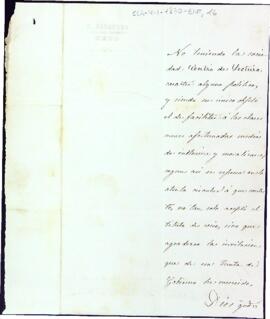 No teniendo la socie
dad Centro de Lectura
caracter alguno politico,
y siendo su unico objeto
el de facilitar á las clases
menos afortunadas medios
de instruirse y moralizarse,
segun asi se expresa en la
atenta circular á que contes
to, no tan solo acepto el
titulo de socio, sino que
agradezco la invitacion
que de esa Junta de
Gobierno he merecido.
Dios guarde